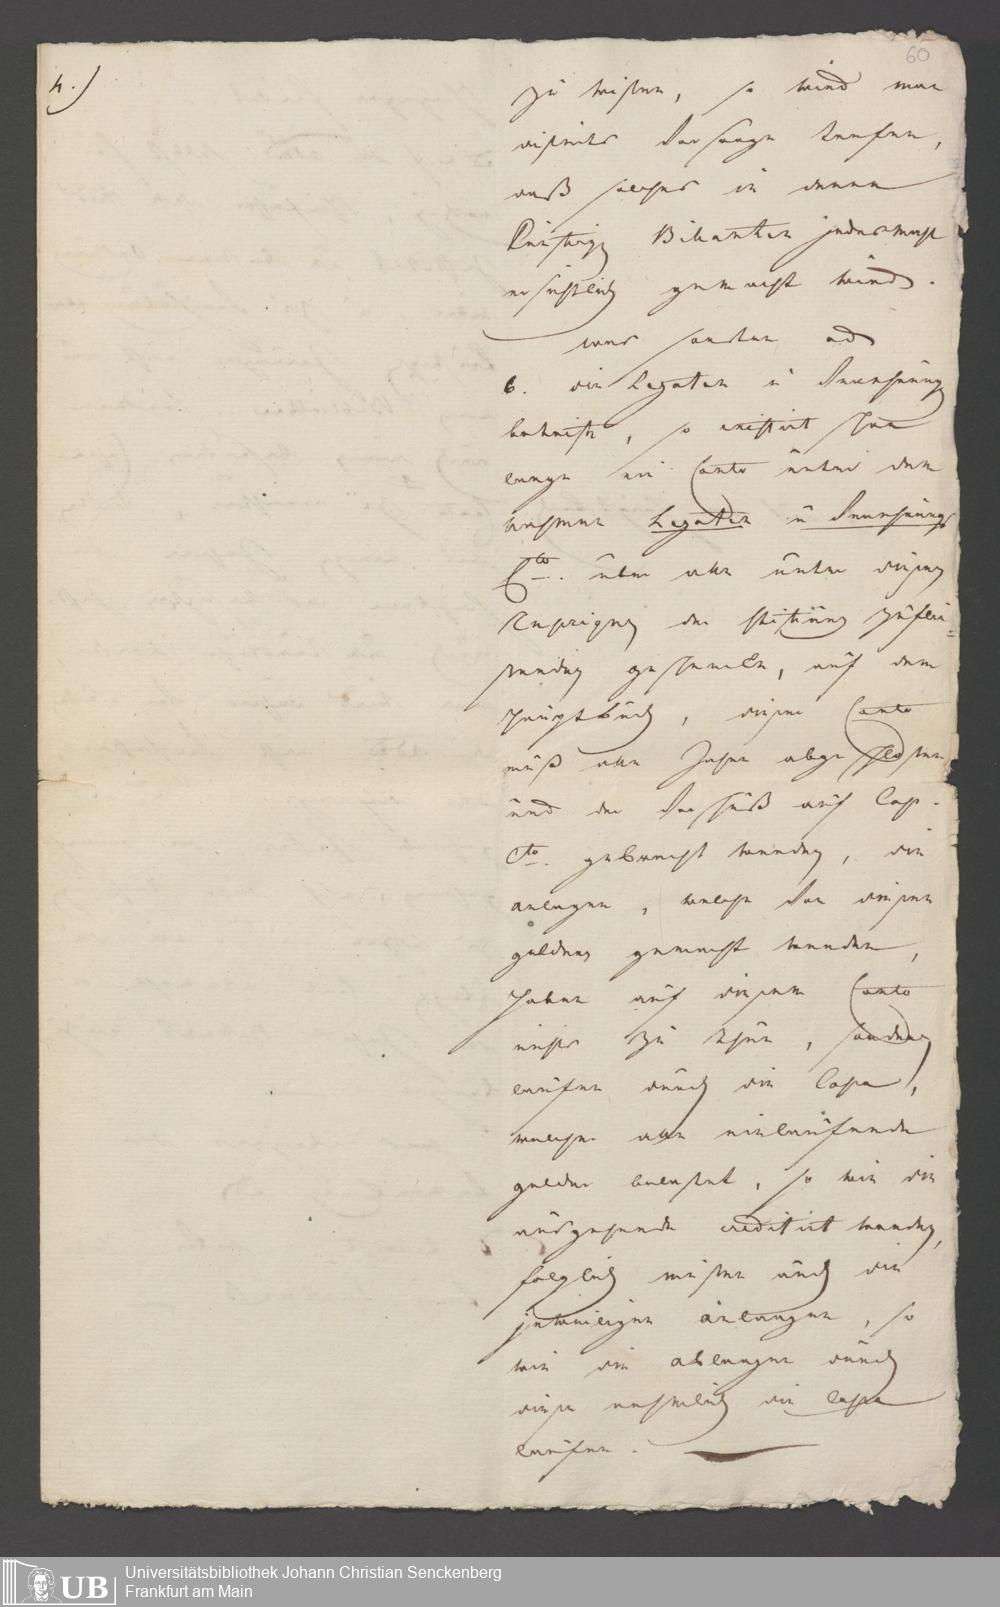 60
4.)
zu wissen, so wird man
disseits Vorsorge treffen,
daß solches in denen
künftigen Bilanzen jedermahl
ersichtlich gemacht wird.
was sonsten ad
6. die Legaten u Verehrung
betrift, so existirt schon
lange ein Conto unter dem
nahmen Legaten u Verehrungs
Cto. über alle unter diesen
Rubriquen der Stiftung zuflie=
senden geschencke, auf dem
Hauptbuch, diesem Conto
muß alle Jahre abgeschlossen
und der Vorschuß auf Cap.
Cto. gebracht werden, die
anlagen, welche von diesen
geldern gemacht werden,
haben auf diesem Conto
nichts zu thun, sondern
laufen durch die Cassa,
welche alle einlaufende
gelder belastet, so wie die
ausgehende creditirt werden,
folglich müssen auch die
jeweiligen anlangen, so
wie die ablangen durch
diese nehmlich die Cassa
laufen.
UB
Universitätsbibliothek Johann Christian Senckenberg
Frankfurt am Main